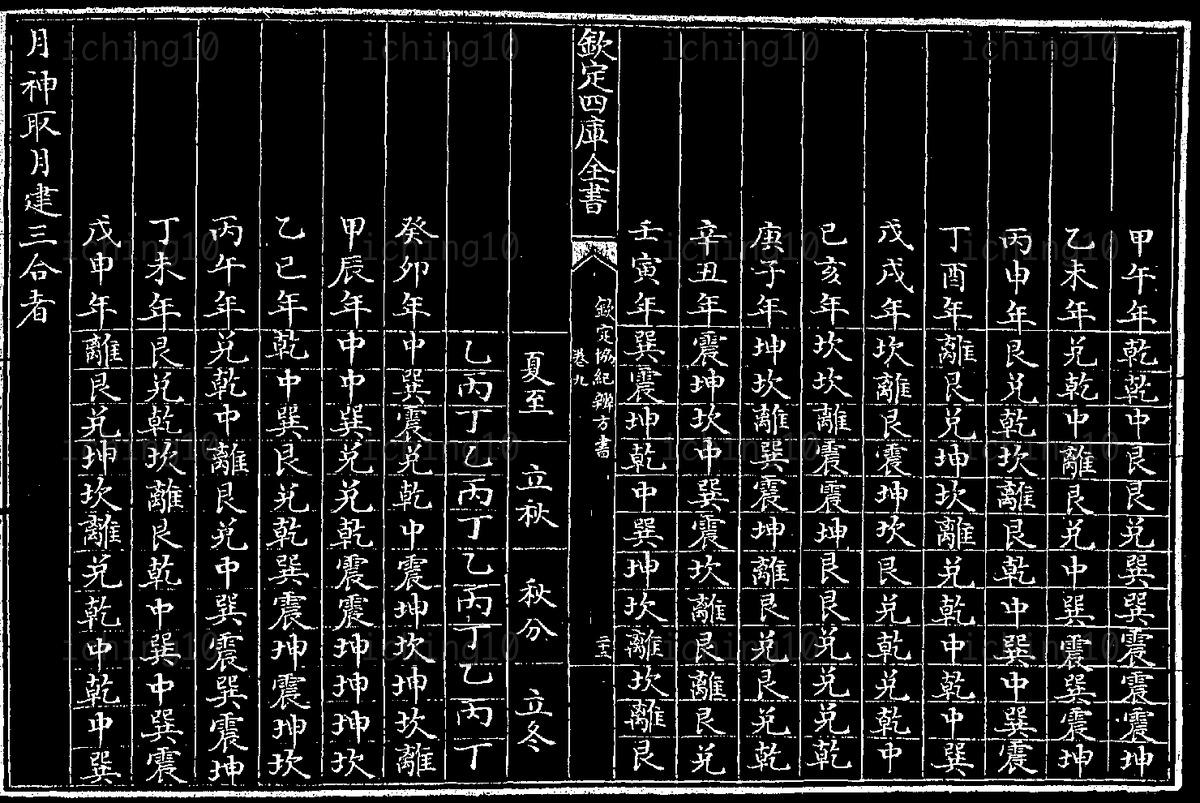 甲午年乾乾中艮艮兑巽巽震震震坤
乙未年兑乾中離艮兑中巽震巽震坤
丙申年艮兑乾坎離艮乾中巽中巽震
丁酉年離艮兑坤坎離兑乾中乾中巽
戊戌年坎離艮震坤坎艮兑乾兑乾中
己亥年坎坎離震震坤艮艮兑兑兑乾
庚子年坤坎離巽震坤離艮兑艮兑乾
辛丑年震坤坎中巽震坎離艮離艮兑
壬寅年巽震坤乾中巽坤坎離坎離艮
欽定四庫全書
欽定協紀辨方書
卷九
夏至 立秋 秋分 立冬
乙丙丁乙丙丁乙丙丁乙丙丁
癸卯年中巽震兑乾中震坤坎坤坎離
甲辰年中中巽兑兑乾震震坤坤坤坎
乙巳年乾中巽艮兑乾巽震坤震坤坎
丙午年兑乾中離艮兑中巽震巽震坤
丁未年艮兑乾坎離艮乾中巽中巽震
戊申年離艮兑坤坎離兑乾中乾中巽
月神取月建三合者
iching10